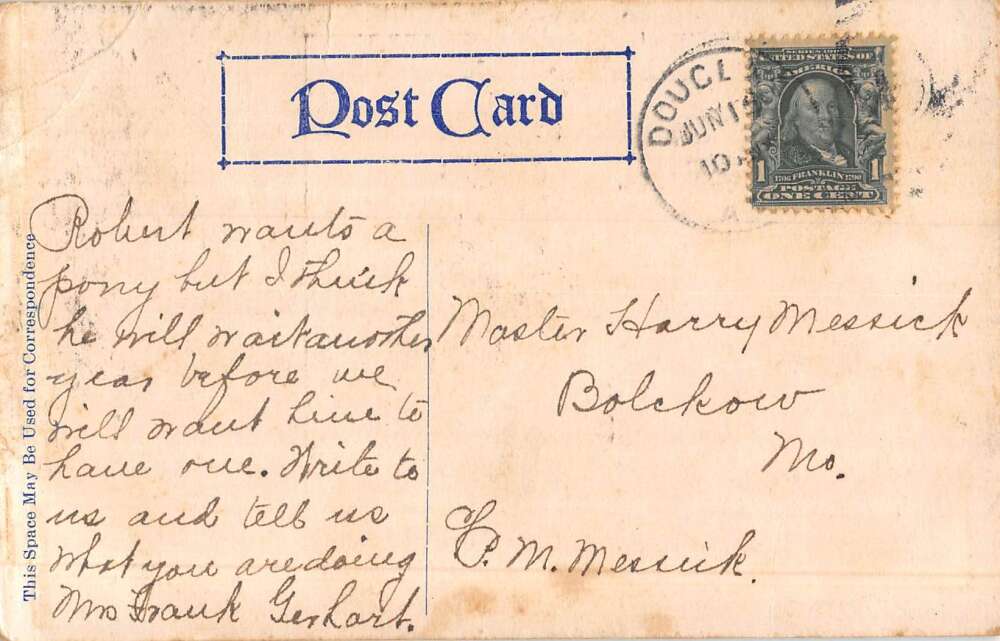 Post Card
DOUGL
JUN 15
10 A
SERIES 1902
UNITED STATES OF
AMERICA
1 1
1706 FRANKLIN 1790
POSTAGE
ONE CENT
This Space May Be Used for Correspondence
Robert wants a
pony but I think
he will wait another
year before we
will want him to
have one. Write to
us and tell us
what you are doing
Mrs Frank Gerhart.
Master Harry Messick
Bolckow
Mo.
℅ P. M. Messick.